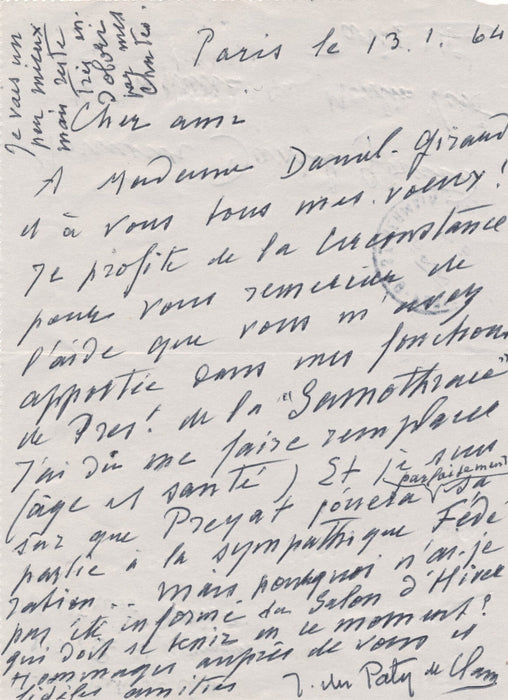 Paris le 13.1.64
Cher ami
A Madame Daniel-Giraud
et à vous tous mes voeux!
Je profite de la circonstance
pour vous remercier de
l'aide que vous m'avez
apportée dans mes fonctions
de Pres! de la "Samothrace"
J'ai dû me faire remplacer
(âge et santé) Et je suis
sûr que Preyat jouera parfaitement sa
partie à la sympathique Fédé
ration... mais pourquoi n'ai-je
pas été informé du Salon d'Hiver
qui doit se tenir en ce moment?
Hommages auprès de vous et
fidèles amitiés J. du Paty de Clam
Je vais un
peu mieux
mais reste
très en-
par mes